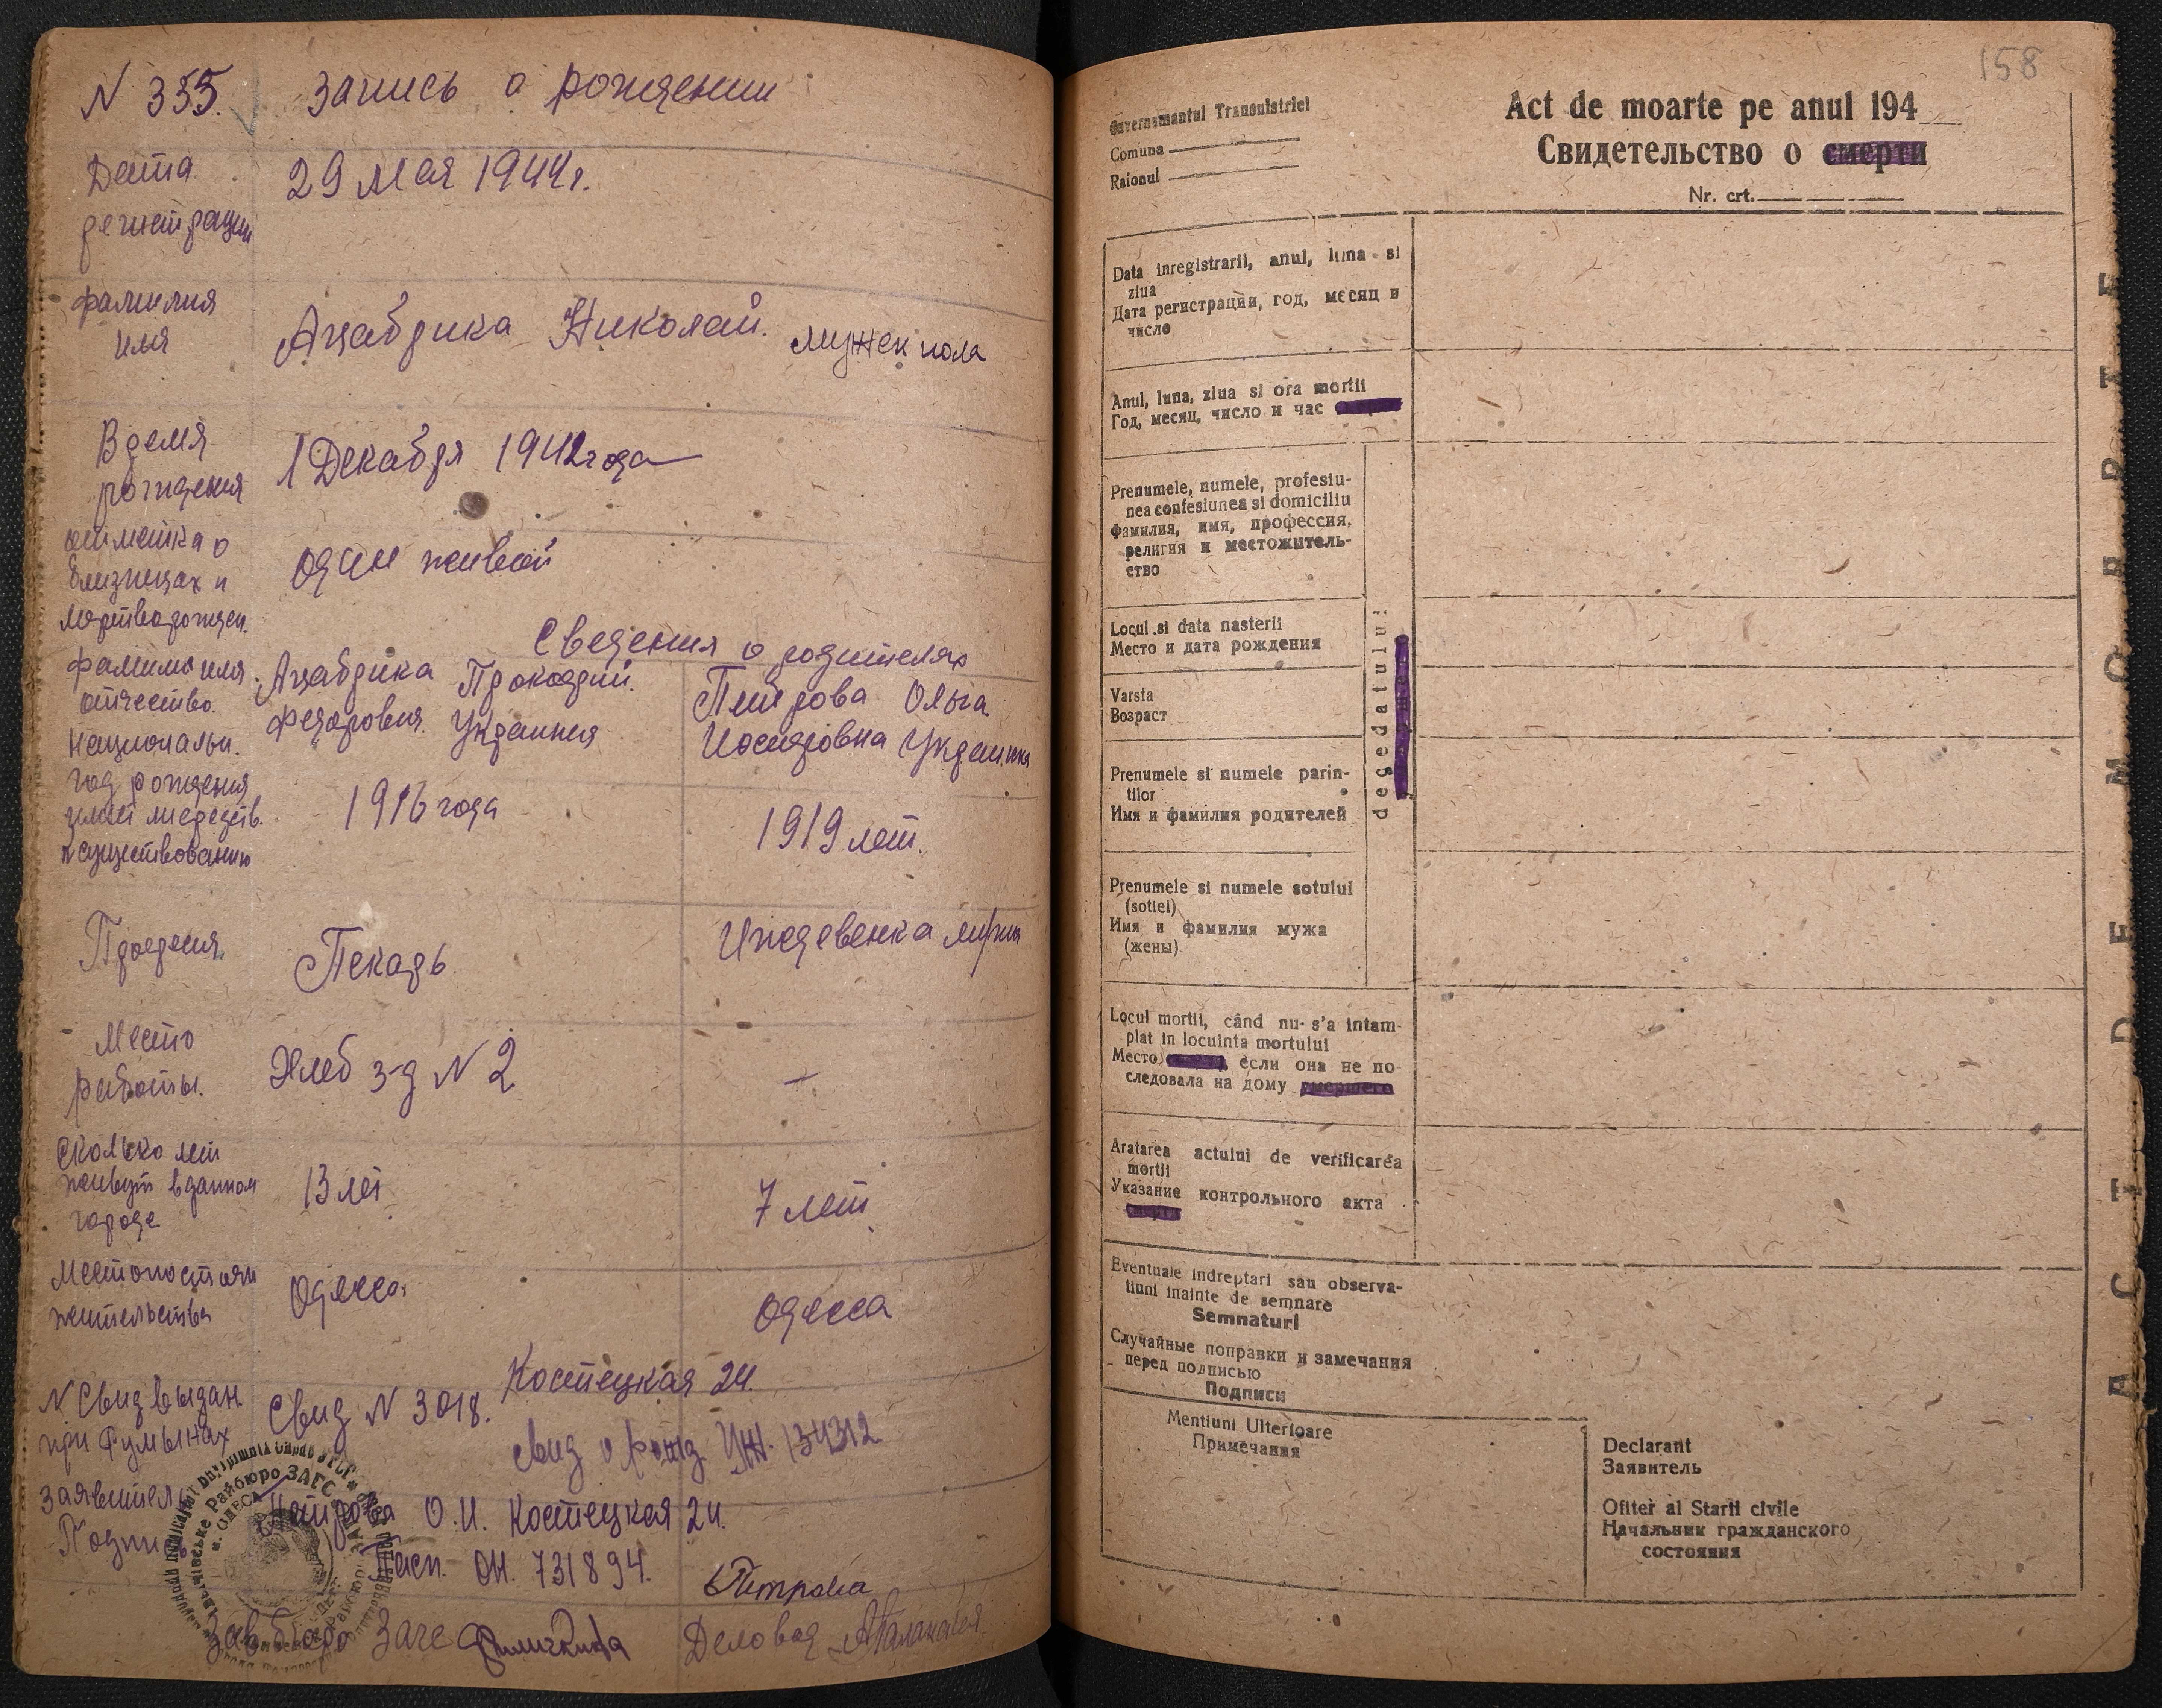 N 355. Запись о рождении
Дата регистрации
29 Мая 1944 г.
Фамилия имя
Ацабрика Николай. Мужск пола
Время рождения
1 Декабря 1942 года
отметка о близнецах и мертворожден.
один живой
Сведения о родителях
фамилия имя отчество. Национальн.
Ацабрика Прокофий.
Федорович. Украинец
Петрова Ольга
Иосифовна Украинка
год рождения
1916 года
1919 лет.
к существованию
Професия.
Пекарь
Иждевенка мужа
Место работы.
Хлеб з-д N 2
—
Сколько лет живут в данном городе
13 лет
7 лет
Место постоян жительства
Одесса.
Одесса
Костецкая 24.
N Свид выдан при Румынах
Свид N 3018.
Свид о рожд УЖ. 134312
Заявитель
Петрова О.И. Костецкая 24.
Подпись
Пасп. ОН. 731894.
Петрова
Зав бюро Загс
Деловод
Райбюро ЗАГС
м. ОДЕСА
158
Guvernamantul Transnistriei
Comuna
Raionul
Act de moarte pe anul 194
Свидетельство о смерти
Nr. crt.
Data inregistrarii, anul, luna si
ziua
Дата регистрации, год, месяц и
число
Anul, luna, ziua si ora mortii
Год, месяц, число и час
Prenumele, numele, profesiu-
nea confesiunea si domiciliu
Фамилия, имя, профессия,
религия и местожитель-
ство
Locul si data nasterii
Место и дата рождения
Varsta
Возраст
Prenumele si numele parin-
tilor
Имя и фамилия родителей
Prenumele si numele sotului
(sotiei)
Имя и фамилия мужа
(жены)
decedatului
Locul mortii, când nu s'a intam-
plat in locuinta mortului
Место, если она не по
следовала на дому
Aratarea actului de verificarea
mortii
Указание контрольного акта
Eventuale indreptari sau observa-
tiuni inainte de semnare
Semnaturi
Случайные поправки и замечания
перед подписью
Подписи
Mentiuni Ulterioare
Примечания
Declarant
Заявитель
Ofiter al Starii civile
Начальник гражданского
состояния
ACT DE MOARTE